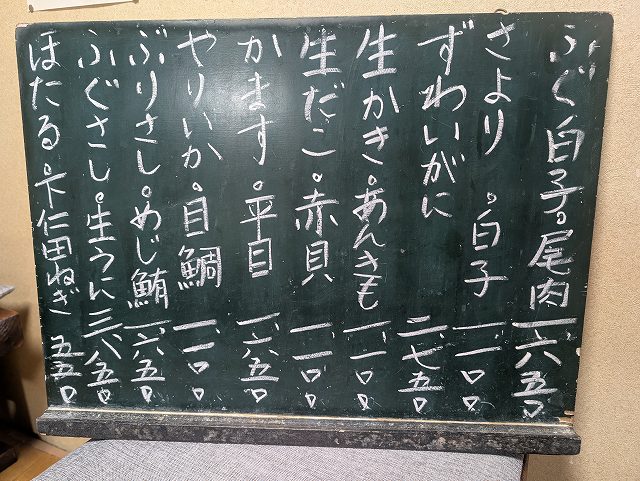 ふぐ白子。尾肉 一、六五〇
さより。白子 一、一〇〇
ずわいがに 二、七五〇
生かき。あんきも 一、一〇〇
生だこ。赤貝 一、一〇〇
かます。平目 一、六五〇
やりいか。目鯛 一、一〇〇
ぶりさし。めじ鮪 一、六五〇
ふぐさし。生うに 三、八五〇
ほたる。下仁田ねぎ 五五〇